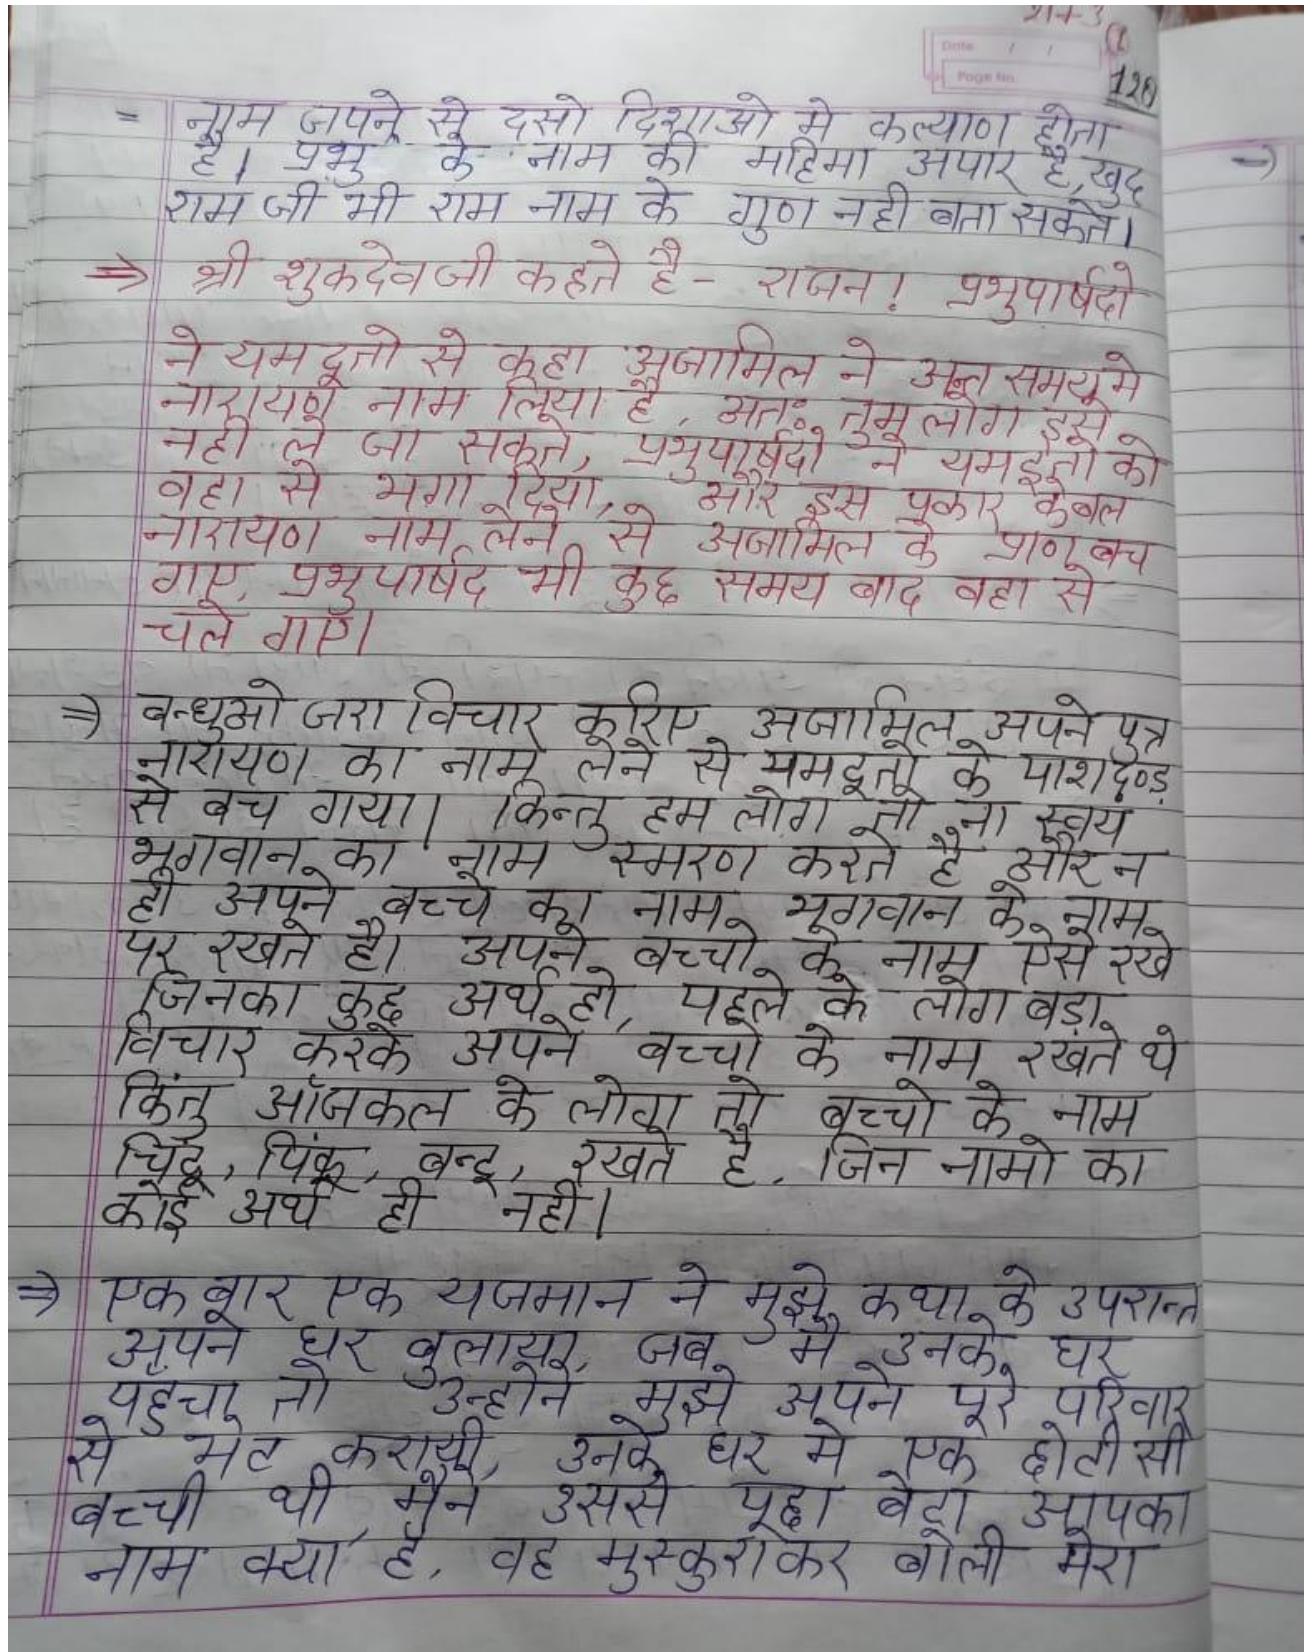 Date / /
Page No.
120
= नाम जपने से दसो दिशाओ मे कल्याण होता
है। प्रभु के नाम की महिमा अपार है, खुद
राम जी भी राम नाम के गुण नही बता सकते।
⇒ श्री शुकदेव जी कहते है - राजन! प्रभुपार्षदो
ने यमदूतो से कहा अजामिल ने अन्त समय मे
नारायण नाम लिया है, अतः तुम लोग इसे
नही ले जा सकते, प्रभुपार्षदो ने यमदूतो को
वहा से भगा दिया, और इस प्रकार केबल
नारायण नाम लेने से अजामिल के प्राण बच
गए, प्रभुपार्षद भी कुछ समय बाद वहा से
चले गाएँ।
⇒ बन्धुओ जरा विचार करिए अजामिल अपने पुत्र
नारायण का नाम लेने से यमदूतो के पाशदण्ड़
से बच गया। किन्तु हम लोग तो ना स्वय
भगवान का नाम स्मरण करते है और न
ही अपने बच्चे का नाम भगवान के नाम
पर रखते है। अपने बच्चो के नाम ऐसे रखे
जिनका कुछ अर्थ हो, पहले के लोग बड़ा
विचार करके अपने बच्चो के नाम रखते थे
किंतु ऑजकल के लोग तो बच्चो के नाम
चिंटू, पिंकू, बन्टू, रखते है, जिन नामो का
कोई अर्थ ही नही।
⇒ एक बार एक यजमान ने मुझे कथा के उपरान्त
अपने घर बुलाया, जब मै उनके घर
पहुँचा तो उन्होने मुझे अपने पूरे परिवार
से भेट करायी, उनके घर मे एक छोटी सी
बच्ची थी, मैने उससे पूछा बेटा आपका
नाम क्या है, वह मुस्कुराकर बोली मेरा